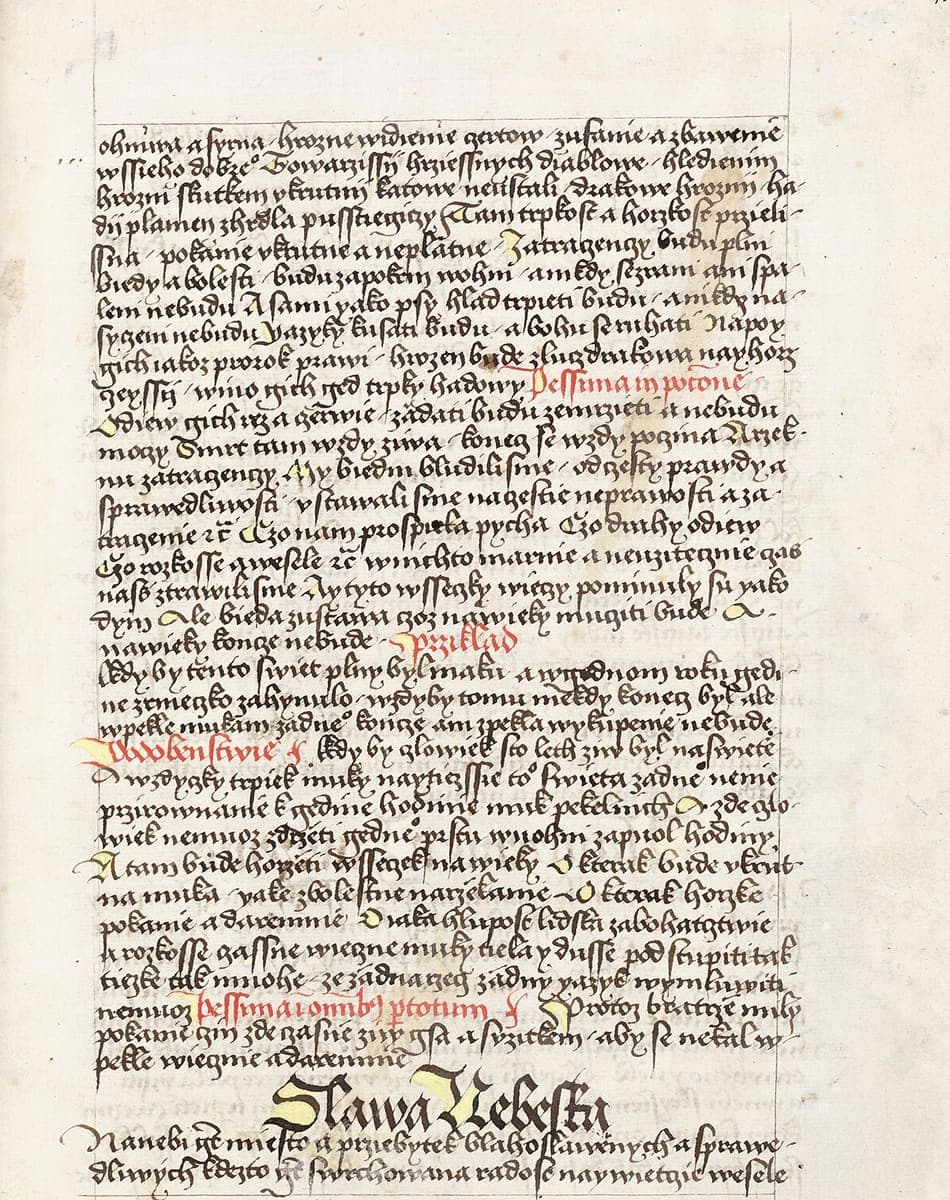 ohniwa a syrna · hrozne widienie czertow · zufanie a zbawenie
wssieho dobre° Towarzissij hrziessnych diablowe · hledienim
hrozni skutkem vkrutni katowe neustali · drakowe hrozni · ha-
dij plamen z hrdla pusstiegiczy Tam trpkost a horzkost przieli-
ssna · pokanie vkrutne a neplatne · Zatraczenczy budu plni
biedy a bolesti · budu zapokem wohni · a nikdy sezrani ani spa-
leni nebudu A sami yako psy hlad trpieti budu · a nikdy na-
syczeni nebudu Yazyky kusati budu · a bohu se ruhati Napoy
gich iakoz prorok prawi · hrozen bude zlucz drakowa nayhorz
czeyssij · wino gich ged trpky hadowy Pessima in potone
Odiew gich rz a czerwie · zadati budu zemrzieti a nebudu
moczy Smrt tam wzdy ziwa · konecz se wzdy poczina A rzek-
nu zatraczenczy My biedni bludili sme · od czesty prawdy a
sprawedliwosti · vstawali sme na czestie neprawosti a za-
traczenie rc Czo nam prospiela pycha Czo drahy odiew
Czo rozkosse a wesele rc w nichto marnie a neuzitecznie czas
nass ztrawili sme Ay tyto wsseczky wieczy pominuly su yako
dym Ale bieda zustawa czoz nawieky mucziti bude A -
nawieky koncze nebude · Przziklad
Kdy by tento swiet plny byl maku · a w gednom roku gedi-
ne zrneczko zahynulo · wzdy by tomu niekdy konecz byl ale
w pekle mukam zadne° koncze ani z pekla wykupenie nebude
Podobenstwie Kdy by czlowiek sto leth ziw byl na swietie
A wzdyczky trpiek muky naytiezssie to° swieta zadne° nenie
przirownanie k gedine hodinie muk pekelnich A zde czlo-
wiek nemuoz zdrzeti gedne° prstu w uohni za puol hodiny
A tam bude horzeti wsseczek na wieky O kterak bude vkrut-
na muka · yake zbolestne narziekanie O kterak horzke
pokanie a daremnie O iaka hlupost lidska za bohatcztwie
a rozkosse czassne wieczne muky tiela y dusse pod stupiti tak
tiezke tak mnohe · ze zadna rzecz zadny yazyk wymluwiti
nemuoz Pessima i omib9 p totum Protoz bratrze mily
pokanie czin zde czasne ziwy gsa a s vzitkem · aby se nekal w -
pekle wiecznie a daremnie
Slawa Nebeska
Na nebi gest miesto a przebytek blahoslawenych a sprawe-
dliwych kdezto gest swrchowana radost naywietczie wesele